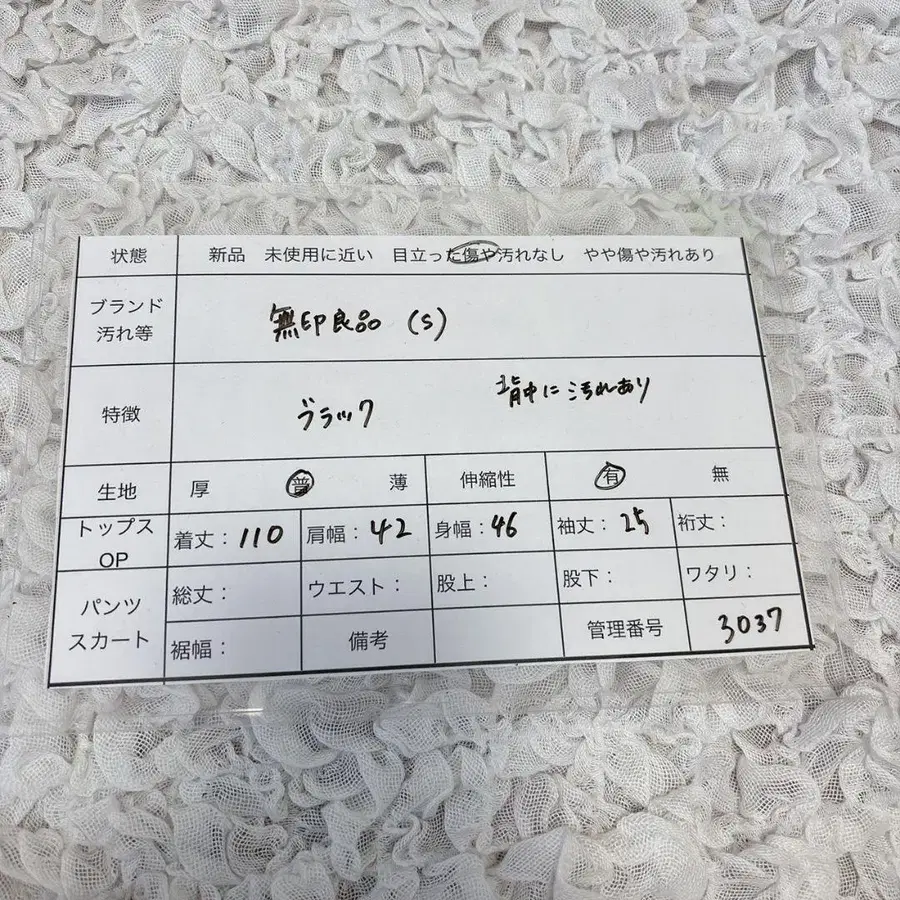 状態 新品 未使用に近い 目立った傷や汚れなし やや傷や汚れあり
ブランド
汚れ等
無印良品 (S)
特徴
ブラック 背中に汚れあり
生地 厚 普 薄 伸縮性 有 無
トップス
OP
着丈：110 肩幅：42 身幅：46 袖丈：25 裄丈：
パンツ
スカート
総丈： ウエスト： 股上： 股下： ワタリ：
裾幅： 備考 管理番号 3037